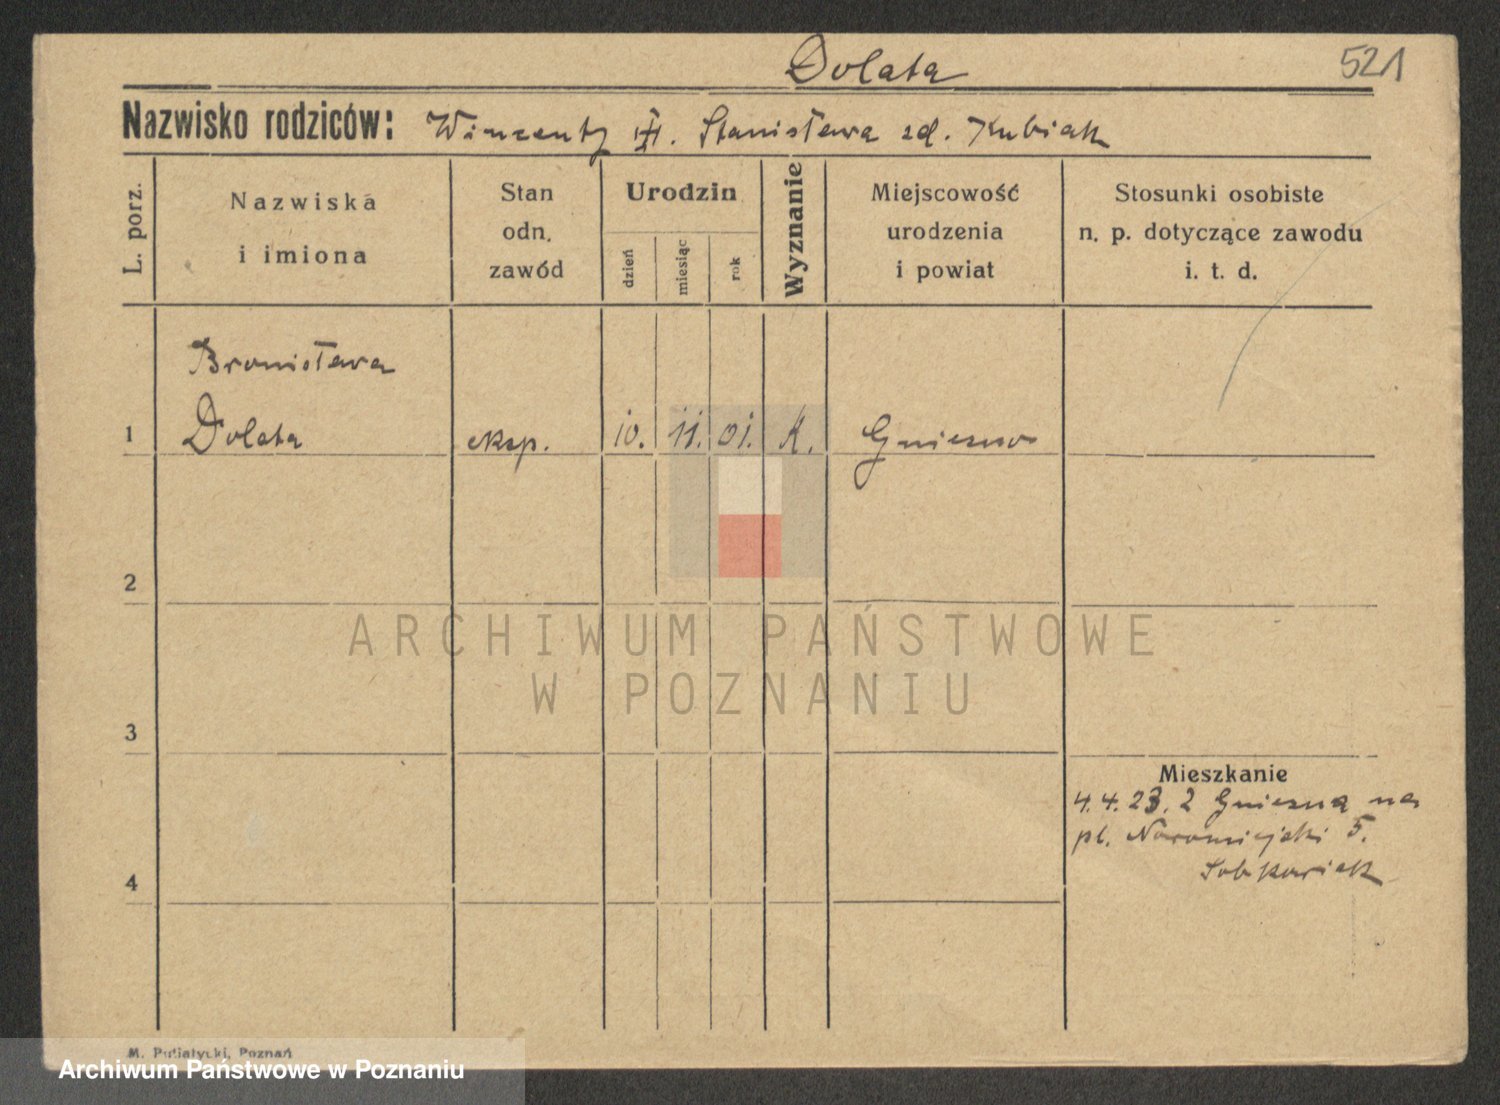 Dolata
521
Nazwisko rodziców: Wincenty Stanisława zd. Kubiak
L. porz.
Nazwiska
i imiona
Stan
odn.
zawód
Urodzin
dzień
miesiąc
rok
Wyznanie
Miejscowość
urodzenia
i powiat
Stosunki osobiste
n. p. dotyczące zawodu
i. t. d.
Bronisława
1 Dolata eksp. 10. 11. 01. K. Gniezno
2
ARCHIWUM PAŃSTWOWE
W POZNANIU
3
Mieszkanie
4.4.23. z Gniezna na
pl. Nowomiejski 5.
Sobkowiak
4
M. Putiatycki, Poznań
Archiwum Państwowe w Poznaniu